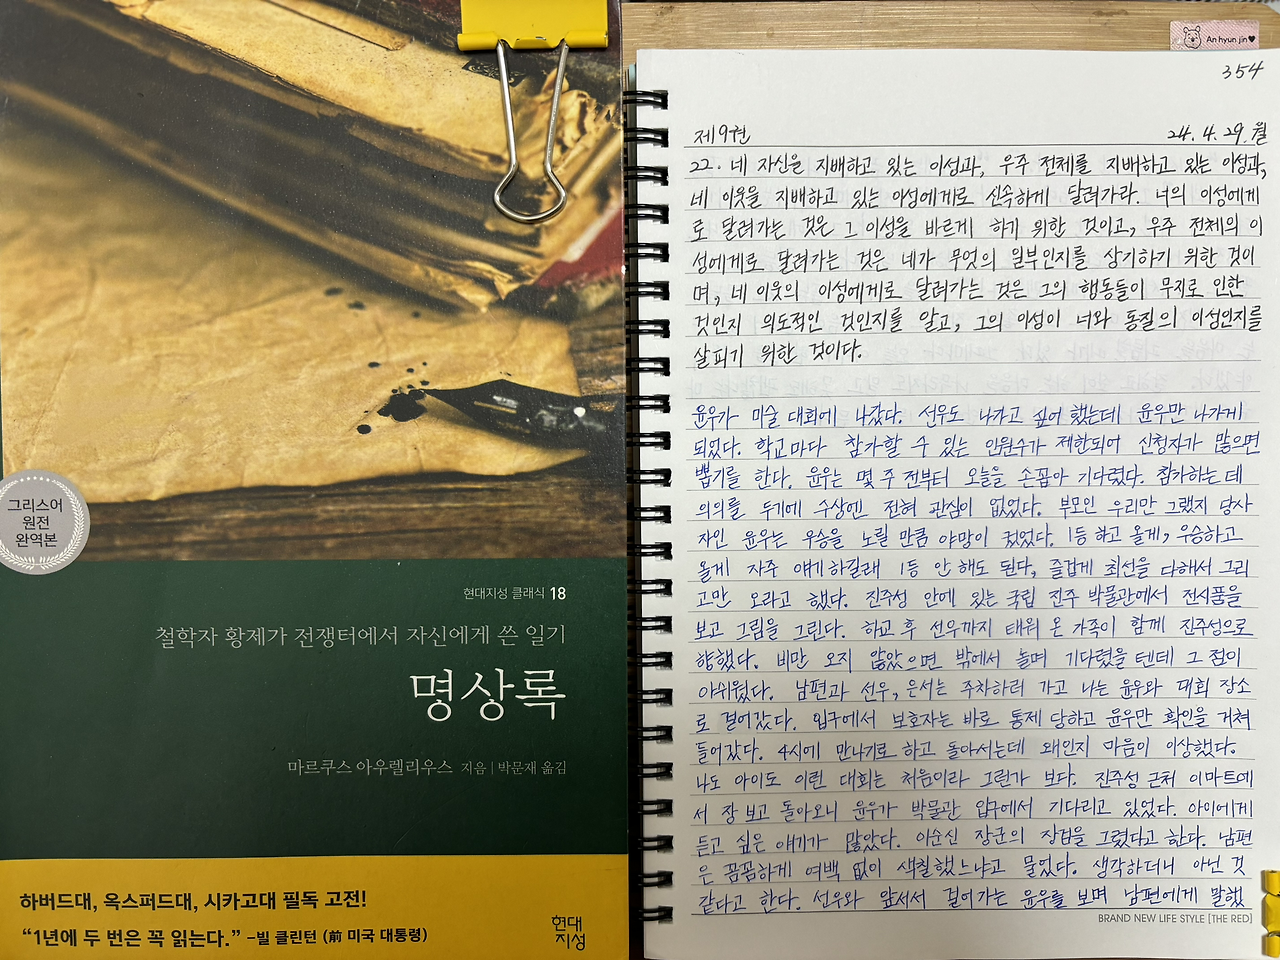 그리스어
원전
완역본
현대지성 클래식 18
철학자 황제가 전쟁터에서 자신에게 쓴 일기
명상록
마르쿠스 아우렐리우스 지음 | 박문재 옮김
하버드대, 옥스퍼드대, 시카고대 필독 고전!
“1년에 두 번은 꼭 읽는다.” -빌 클린턴 (前 미국 대통령)
현대
지성
An hyun jin♥
354
제9권 24.4.29.월
22. 네 자신을 지배하고 있는 이성과, 우주 전체를 지배하고 있는 이성과,
네 이웃을 지배하고 있는 이성에게로 신속하게 달려가라. 너의 이성에게
로 달려가는 것은 그 이성을 바르게 하기 위한 것이고, 우주 전체의 이
성에게로 달려가는 것은 네가 무엇의 일부인지를 상기하기 위한 것이
며, 네 이웃의 이성에게로 달려가는 것은 그의 행동들이 무지로 인한
것인지 의도적인 것인지를 알고, 그의 이성이 너와 동질의 이성인지를
살피기 위한 것이다.
윤우가 미술 대회에 나갔다. 선우도 나가고 싶어 했는데 윤우만 나가게
되었다. 학교마다 참가할 수 있는 인원수가 제한되어 신청자가 많으면
뽑기를 한다. 윤우는 몇 주 전부터 오늘을 손꼽아 기다렸다. 참가하는 데
의의를 두기에 수상엔 전혀 관심이 없었다. 부모인 우리만 그랬지 당사
자인 윤우는 우승을 노릴 만큼 야망이 컸었다. 1등 하고 올게, 우승하고
올게 자주 얘기하길래 1등 안 해도 된다, 즐겁게 최선을 다해서 그리
고만 오라고 했다. 진주성 안에 있는 국립 진주 박물관에서 전시품을
보고 그림을 그린다. 하교 후 선우까지 태워 온 가족이 함께 진주성으로
향했다. 비만 오지 않았으면 밖에서 놀며 기다렸을 텐데 그 점이
아쉬웠다. 남편과 선우, 은서는 주차하러 가고 나는 윤우와 대회 장소
로 걸어갔다. 입구에서 보호자는 바로 통제 당하고 윤우만 확인을 거쳐
들어갔다. 4시에 만나기로 하고 돌아서는데 왜인지 마음이 이상했다.
나도 아이도 이런 대회는 처음이라 그런가 보다. 진주성 근처 이마트에
서 장 보고 돌아오니 윤우가 박물관 입구에서 기다리고 있었다. 아이에게
듣고 싶은 얘기가 많았다. 이순신 장군의 장검을 그렸다고 한다. 남편
은 꼼꼼하게 여백 없이 색칠했느냐고 물었다. 생각하더니 아닌 것
같다고 한다. 선우와 앞서서 걸어가는 윤우를 보며 남편에게 말했
BRAND NEW LIFE STYLE [THE RED]